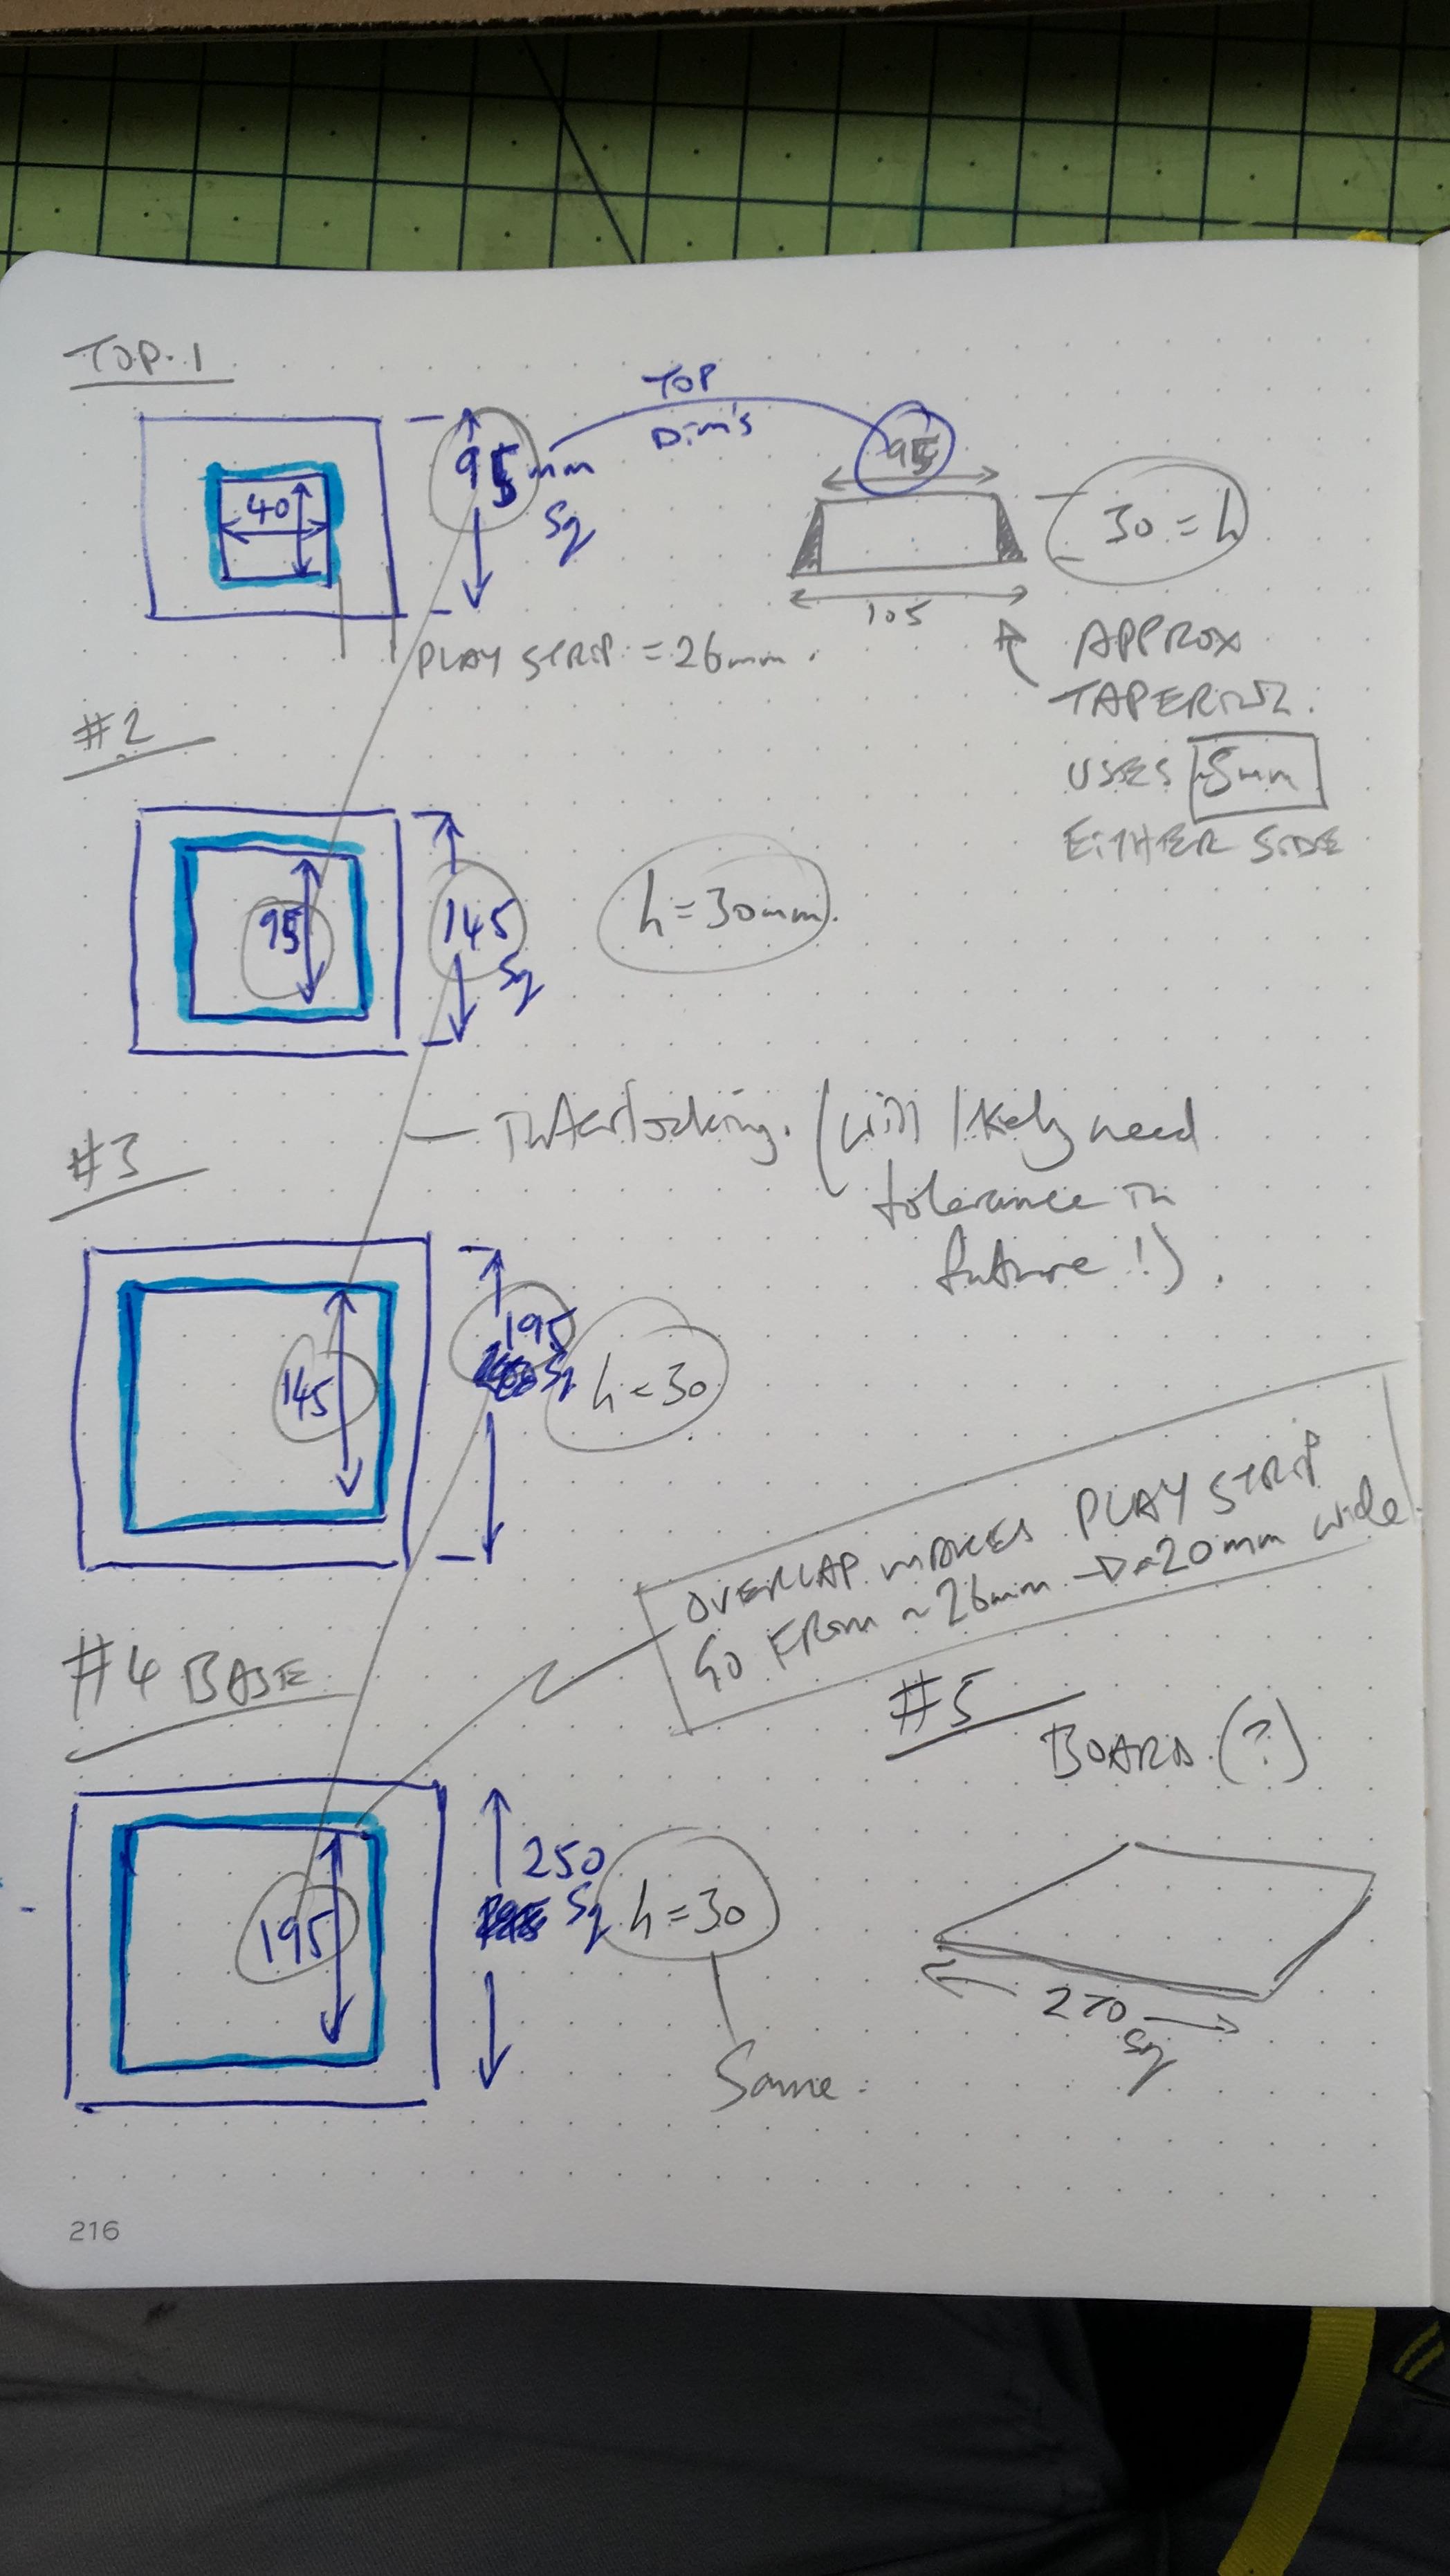 TOP. 1
TOP
Dim's
95mm
Sq
95
40
30 = h
105
PLAY STRIP = 26mm.
APPROX
TAPERING.
USES 5mm
EITHER SIDE
#2
95
145
Sq
h = 30mm.
Interlocking. (will likely need
tolerance in
future!).
#3
145
195
Sq
h = 30
OVERLAP MAKES PLAY STRIP
GO FROM ~26mm → ~20mm wide.
#4 BASE
#5
BOARD (?)
195
250
Sq
h = 30
Same.
270
Sq
216